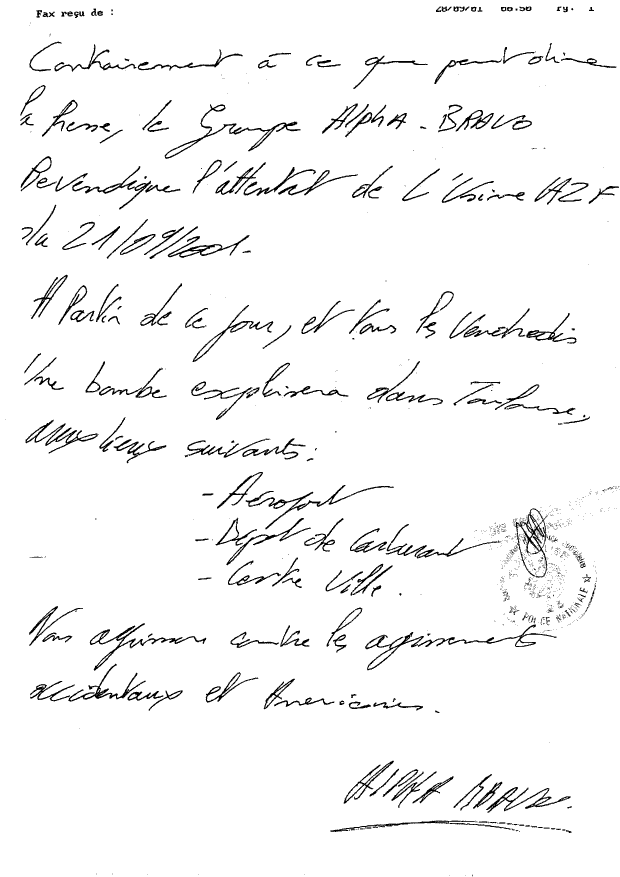 Fax reçu de :
28/09/01 08:58 Pg. 1
Contrairement à ce que peut dire
la Presse, le Groupe Alpha - BRAVO
Revendique l'attentat de L'Usine AZF
du 21/09/2001.
A Partir de ce jour, et tous les Vendredis
Une bombe explosera dans Toulouse,
aux lieux suivants :
- Aéroport
- Dépot de Carburant
- Centre Ville.
Nous agissons contre les agissements
occidentaux et Americains.
ALPHA BRAVO.
POLICE NATIONALE